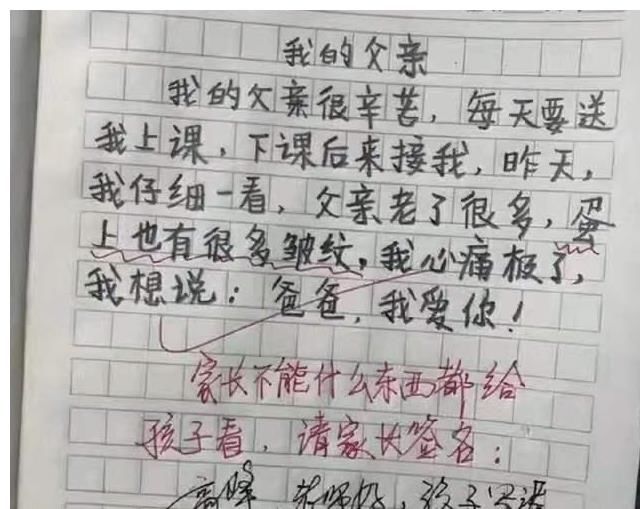 我的父亲
我的父亲很辛苦，每天要送
我上课，下课后来接我，昨天，
我仔细一看，父亲老了很多，蛋
上也有很多皱纹，我心痛极了，
我想说：爸爸，我爱你！
家长不能什么东西都给
孩子看，请家长签名：
高峰 老师好，孩子